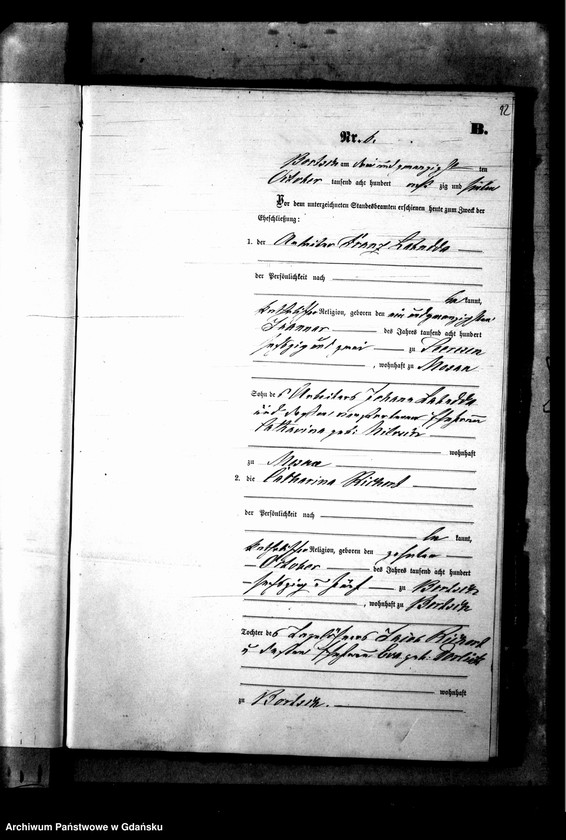 92
B.
Nr. 6.
am drei und zwanzigsten
October tausend acht hundert acht zig und sieben
Vor dem unterzeichneten Standesbeamten erschienen heute zum Zweck der
Eheschließung:
1. der Arbeiter Franz Labudda
der Persönlichkeit nach
be kannt,
katholischer Religion, geboren den ein und zwanzigsten
Januar des Jahres tausend acht hundert
sechszig und zwei zu
, wohnhaft zu
Sohn des Arbeiters Johann Labudda
und dessen verstorbenen Ehefrau
Catharina geb.
wohnhaft
zu
2. die Catharina Richert
der Persönlichkeit nach
be kannt,
katholischer Religion, geboren den zehnten
October des Jahres tausend acht hundert
sechszig u fünf zu
, wohnhaft zu
Tochter des Tagelöhners Jacob Richert
u dessen Ehefrau Eva geb.
wohnhaft
zu
Archiwum Państwowe w Gdańsku